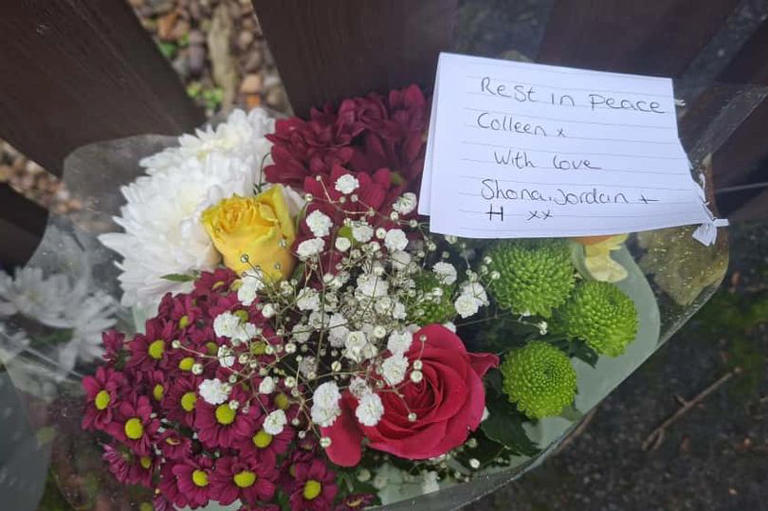 Rest in Peace
Colleen x
With love
Shona, Jordan +
H xx